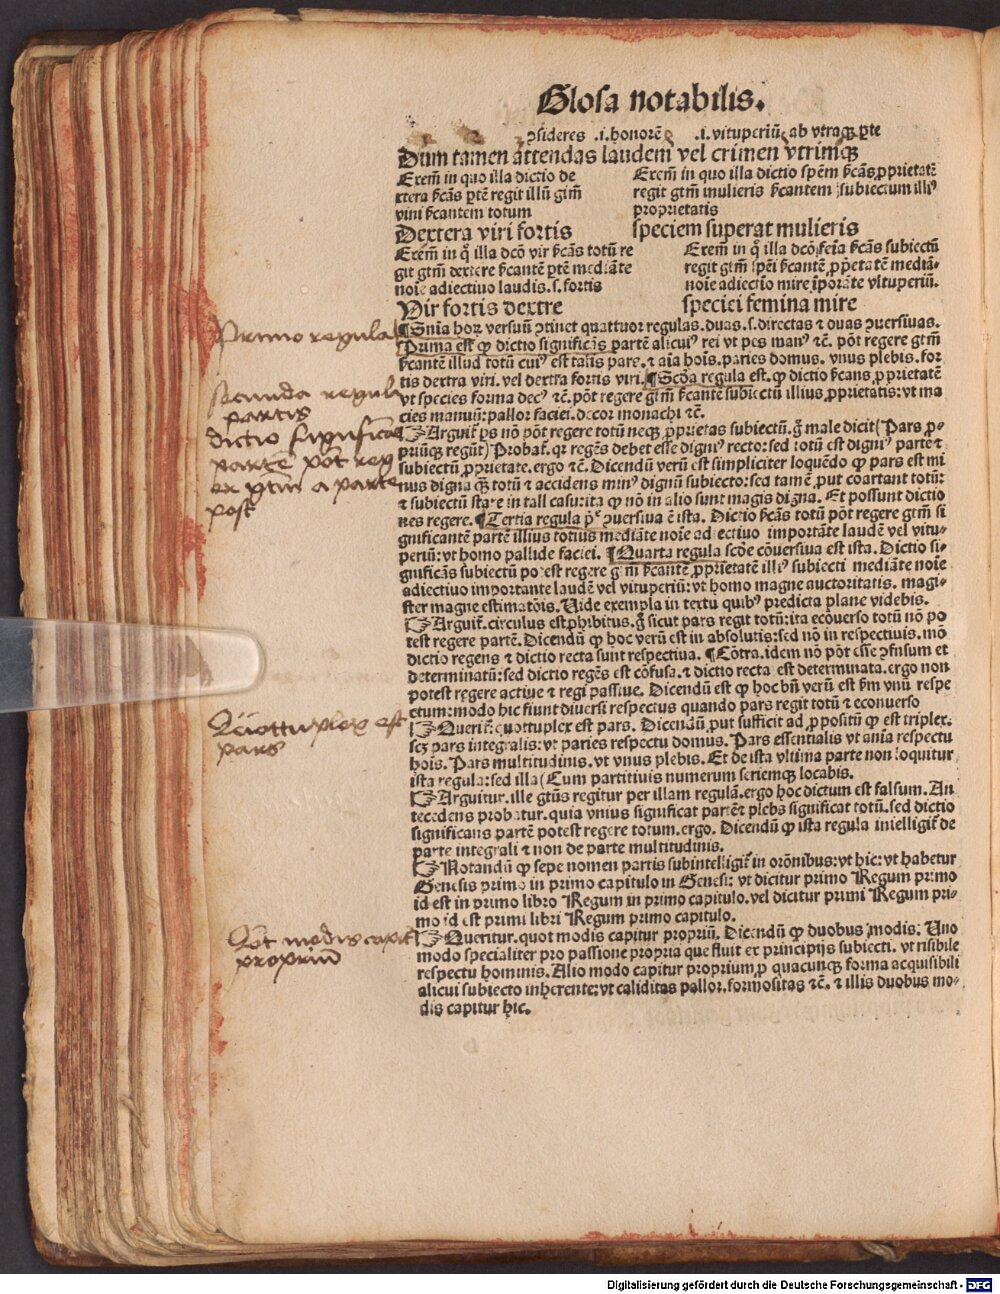 Glosa notabilis.
ↄsideres .i. honorē .i. vituperiū ab vtraqꝫ ꝑte
Dum tamen attendas laudem vel crimen vtrimqꝫ
Exem̄ in quo illa dictio de
xtera ſ̄cās ꝑtē regit illū gtm̄
viri ſ̄cantem totum
Exem̄ in quo illa dictio spēm ſ̄cās ꝓprietatē
regit gtm̄ mulieris ſ̄cantem subiectum illiꝰ
proprietatis
Dextera viri fortis
speciem superat mulieris
Exem̄ in q̊ illa dcō vir ſ̄cās totū re
git gtm̄ dextere ſ̄cantē ꝑtē mediāte
noīe adiectiuo laudis .s. fortis
Exem̄ in q̊ illa dcō feīa ſ̄cās subiectū
regit gtm̄ spēi ſ̄cantē ꝓpetatē mediā-
noīe adiectīo mire īporāte vituperiū.
Vir fortis dextre
speciei femina mire
¶Snīa hoꝝ versuū ↄtinet quattuor regulas. duas .s. directas ⁊ duas ↄuersiuas.
Prima est ꝙ dictio significās partē alicuiꝰ rei vt pes manꝰ ⁊c̄. pōt regere gtm̄
ſ̄cantē illud totū cuiꝰ est talis pars. ⁊ aīa hoīs. paries domus. vnus plebis. for
tis dextra viri. vel dextra fortis viri. ¶Scd̄a regula est. ꝙ dictio ſ̄cans ꝓprietatē
vt species forma decꝰ ⁊c̄. pōt regere gtm̄ ſ̄cantē subiectū illius ꝓprietatis: vt ma
cies manuū: pallor faciei. decor monachi ⁊c̄.
☞Arguit̄ ꝑs nō pōt regere totū neqꝫ ꝓprietas subiectū. g̊ male dicit (Pars ꝓ-
priūqꝫ regūt) Probat̄. qr regēs debet esse digniꝰ recto: sed totū est digniꝰ parte ⁊
subiectū ꝓprietate. ergo ⁊c̄. Dicendū verū est simpliciter loquēdo ꝙ pars est mi
nus digna qꝫ totū ⁊ accidens minꝰ dignū subiecto: sed tamē put coartant totū:
⁊ subiectū stare in tali casu: ita ꝙ nō in alio sunt magis digna. Et possunt dictio
nes regere. ¶Tertia regula pͤ ↄuersiua ē ista. Dictio ſ̄cās totū pōt regere gtm̄ si
gnificantē partē illius totius mediāte noīe adiectiuo importāte laudē vel vitu-
periū: vt homo pallide faciei. ¶Quarta regula scd̄e cōuersiua est ista. Dictio si-
gnificās subiectū potest regere gtm̄ ſ̄cantē ꝓprietatē illiꝰ subiecti mediāte noīe
adiectiuo importante laudē vel vituperiū: vt homo magne auctoritatis. magi-
ster magne estimatōis. Vide exempla in textu quibꝰ predicta plane videbis.
☞Arguit̄. circulus est ꝓhibitus. g̊ sicut pars regit totū: ita ecōuerso totū nō po
test regere partē. Dicendū ꝙ hoc verū est in absolutis: sed nō in respectiuis. mō
dictio regens ⁊ dictio recta sunt respectiua. ¶Cōtra. idem nō pōt esse ↄfusum et
determinatū: sed dictio regēs est cōfusa. ⁊ dictio recta est determinata. ergo non
potest regere actiue ⁊ regi passiue. Dicendū est ꝙ hoc bn̄ verū est ſm vnū respe
ctum: modo hic fiunt diuersi respectus quando pars regit totū ⁊ econuerso
☞Querit̄. quottuplex est pars. Dicendū put sufficit ad ꝓpositū ꝙ est triplex.
scꝫ pars integralis: vt paries respectu domus. Pars essentialis vt anīa respectu
hoīs. Pars multitudinis. vt vnus plebis. Et de ista vltima parte non loquitur
ista regula: sed illa (Cum partitiuis numerum seriemqꝫ locabis.
☞Arguitur. ille gtūs regitur per illam regulā. ergo hoc dictum est falsum. An
tecedens probatur. quia vnius significat partē ⁊ plebs significat totū. sed dictio
significans partē potest regere totum. ergo. Dicendū ꝙ ista regula intelligit̄ de
parte integrali ⁊ non de parte multitudinis.
☞Notandū ꝙ sepe nomen partis subintelligit̄ in orōnibus: vt hic: vt habetur
Genesis primo in primo capitulo in Genesi: vt dicitur primo Regum primo
id est in primo libro Regum in primo capitulo. vel dicitur primi Regum pri-
mo id est primi libri Regum primo capitulo.
☞Queritur. quot modis capitur propriū. Dicendū ꝙ duobus modis. Uno
modo specialiter pro passione propria que fluit ex principijs subiecti. vt risibile
respectu hominis. Alio modo capitur proprium ꝓ quacunqꝫ forma acquisibili
alicui subiecto inherente: vt caliditas pallor. formositas ⁊c̄. ⁊ illis duobus mo-
dis capitur hic.
Primo regula
Secunda regula
partis
dictio significās
partē pōt reg
ex gtm̄ a parte
post
Quottuplex est
pars
Qōt modis capit̄
propriū
Digitalisierung gefördert durch die Deutsche Forschungsgemeinschaft - DFG